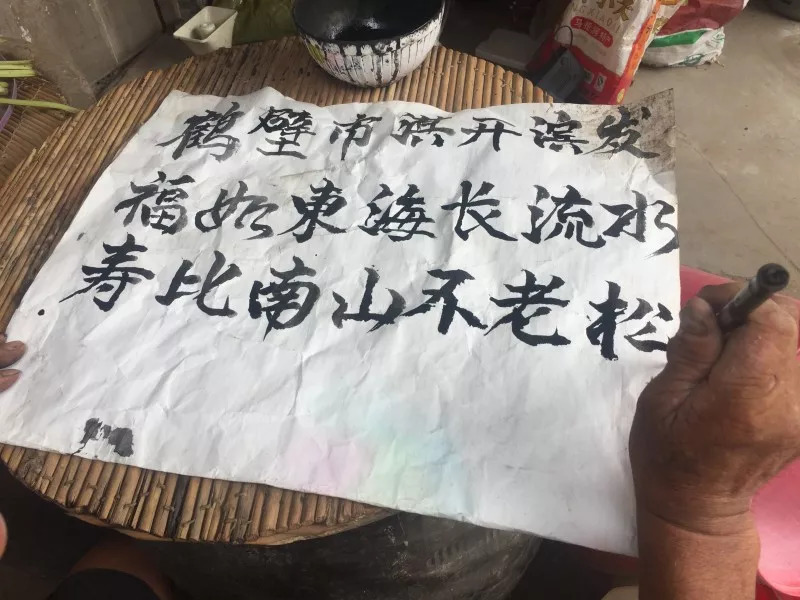 鹤壁市淇开滨发
福如東海长流水
寿比南山不老松